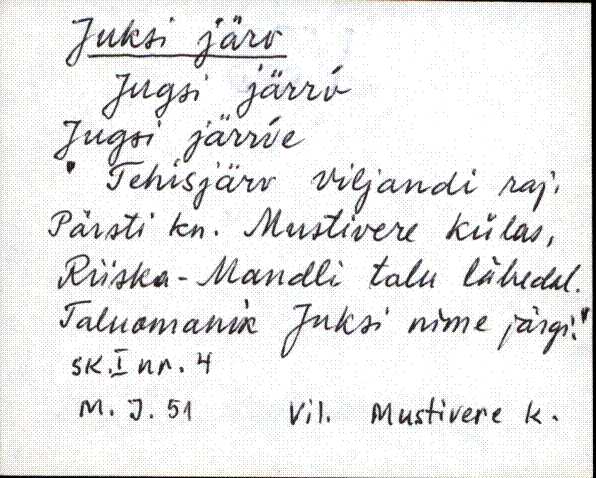 Juksi järv
Jugsi järrv́
Jugsi järrv́e
" Tehisjärv Viljandi raj.
Pärsti kn. Mustivere külas,
Riiska-Mandli talu lähedal.
Taluomanik Juksi nime järgi."
SK. I nr. 4
M. J. 51 Vil. Mustivere k.